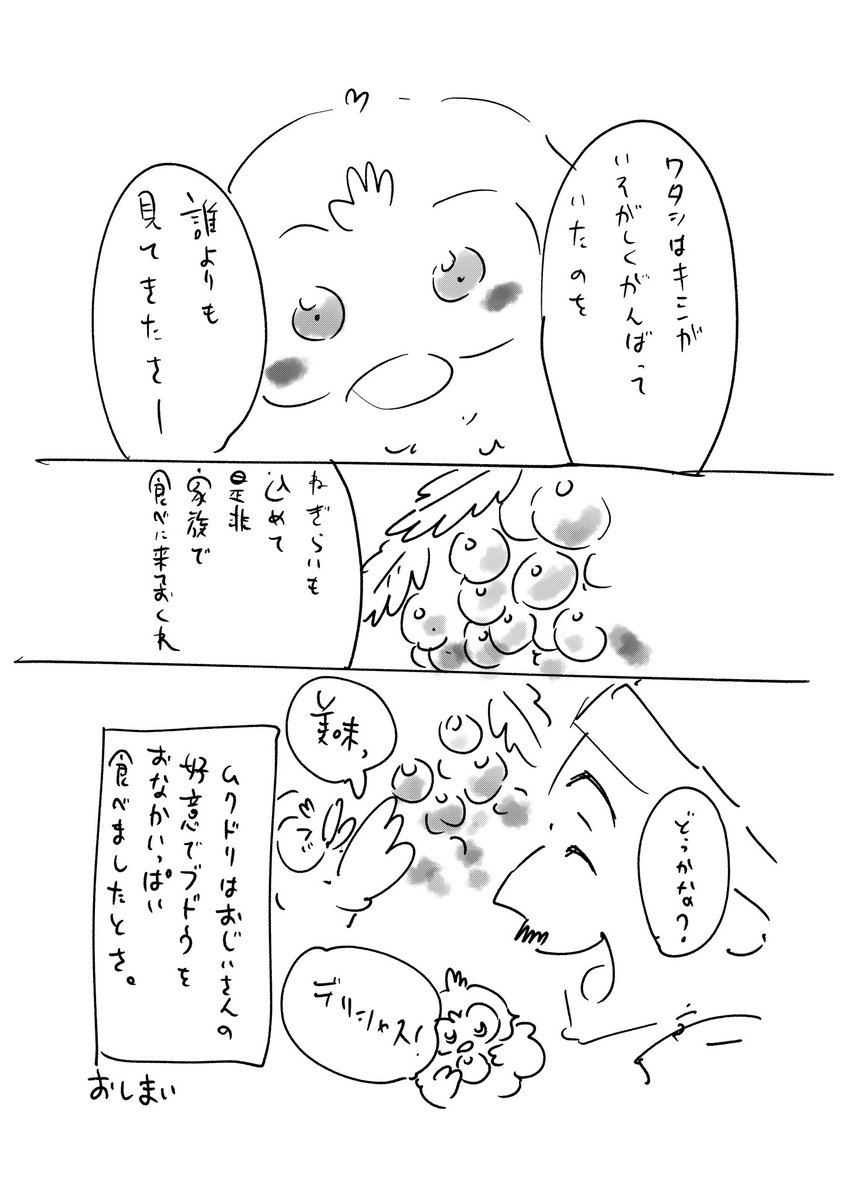 ワタシはキミが
いそがしくがんばって
いたのを
誰よりも
見てきたさー
ねぎらいも
込めて
是非
家族で
食べに来ておくれ
どうかな?
美味、
デリシャス!
ムクドリはおじいさんの
好意でブドウを
おなかいっぱい
食べましたとさ。
おしまい